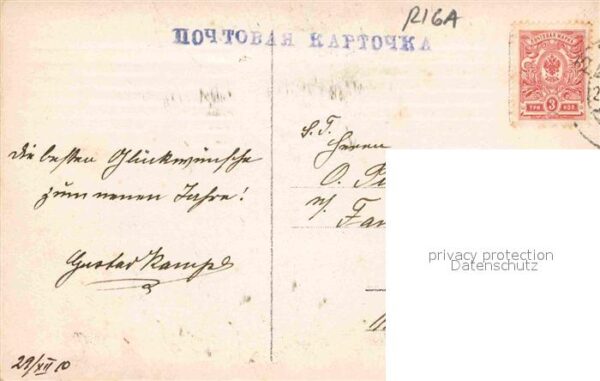 R16A
ПОЧТОВАЯ КАРТОЧКА
ПОЧТОВАЯ МАРКА
3
ТРИ КОП
S. T.
Herrn
O.
die besten Glückwünsche
zum neuen Jahre!
Gustav Kampe
privacy protection
Datenschutz
29/XII 10